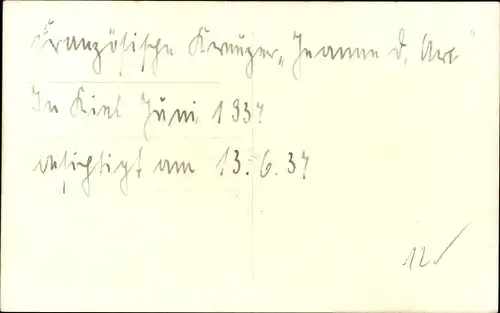 Französische Kreuzer „Jeanne d. Arc"
In Kiel Juni 1937
besichtigt am 13.6.37
12